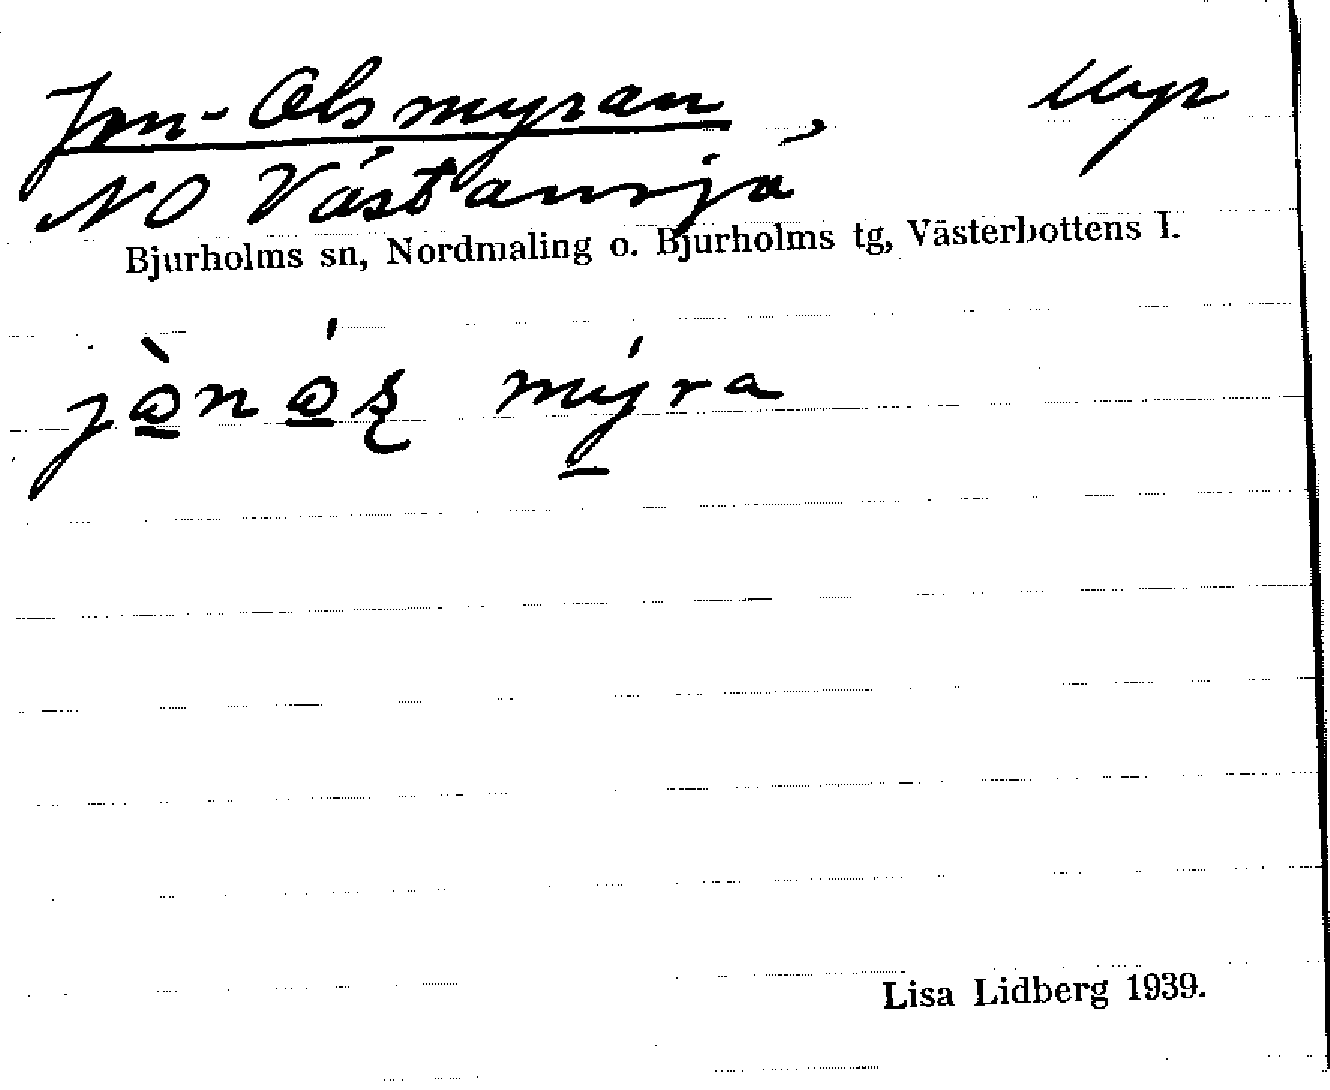 Jon-Olsmyran Myr
NO Västansjö
Bjurholms sn, Nordmaling o. Bjurholms tg, Västerbottens l.
Lisa Lidberg 1939.